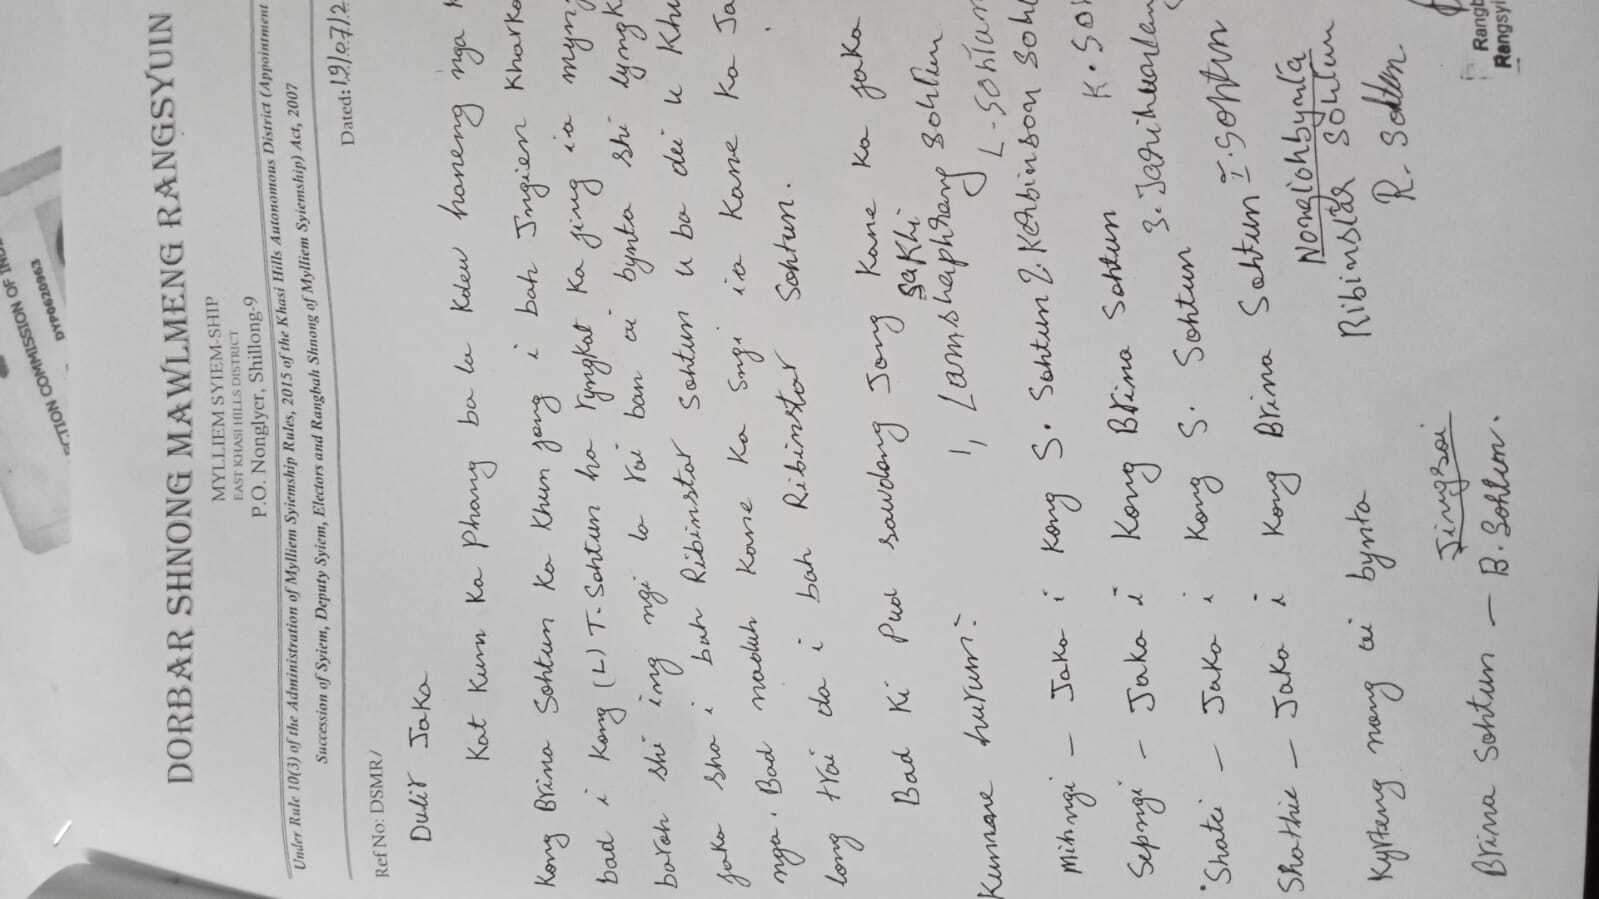 DORBAR SHNONG MAWLMENG RANGSYUIN
MYLLIEM SYIEM-SHIP
EAST KHASI HILLS DISTRICT
P.O. Nonglyer, Shillong-9
Under Rule 10(3) of the Administration of Mylliem Syiemship Rules, 2015 of the Khasi Hills Autonomous District (Appointment
Succession of Syiem, Deputy Syiem, Electors and Rangbah Shnong of Mylliem Syiemship) Act, 2007
Ref No: DSMR/ Dated: 19/07/2
Dulir Jaka
Kat kum ka Phang ba la kdew haneng nga
Kong Brina Sohtun ka khun jong i bah Ingien Kharko
bad i Kong (L) T. Sohtun ha ryngkat ka jing ia mynj
baroh shi ing ngi la rai ban ai bynta shi lyngk
jaka sha i bah Ribinstar Sohtun u ba dei u khu
nga. Bad naduh kane ka sngi ia kane ka Ja
long trai da i bah Ribinstar Sohtun.
Bad ki Pud sawdong Jong kane ka jaka
kumne harum:
SaKhi
1, Lamshaphrang Sohtun
L-Sohtun
Mihngi - Jaka i Kong S. Sohtun 2. Kerbinson Soht
K. Soh
Sepngi - Jaka i Kong Brina Sohtun
Shatei - Jaka i Kong S. Sohtun
I. Sohtun
Shathie - Jaka i Kong Brina Sohtun
Kyrteng nong ai bynta
Nongiohbynta
Ribinstar Sohtun
Jingsoi
Brina Sohtun - B. Sohtun.
ELECTION COMMISSION OF IND
DYP0620963
Rangb
Rangsyi